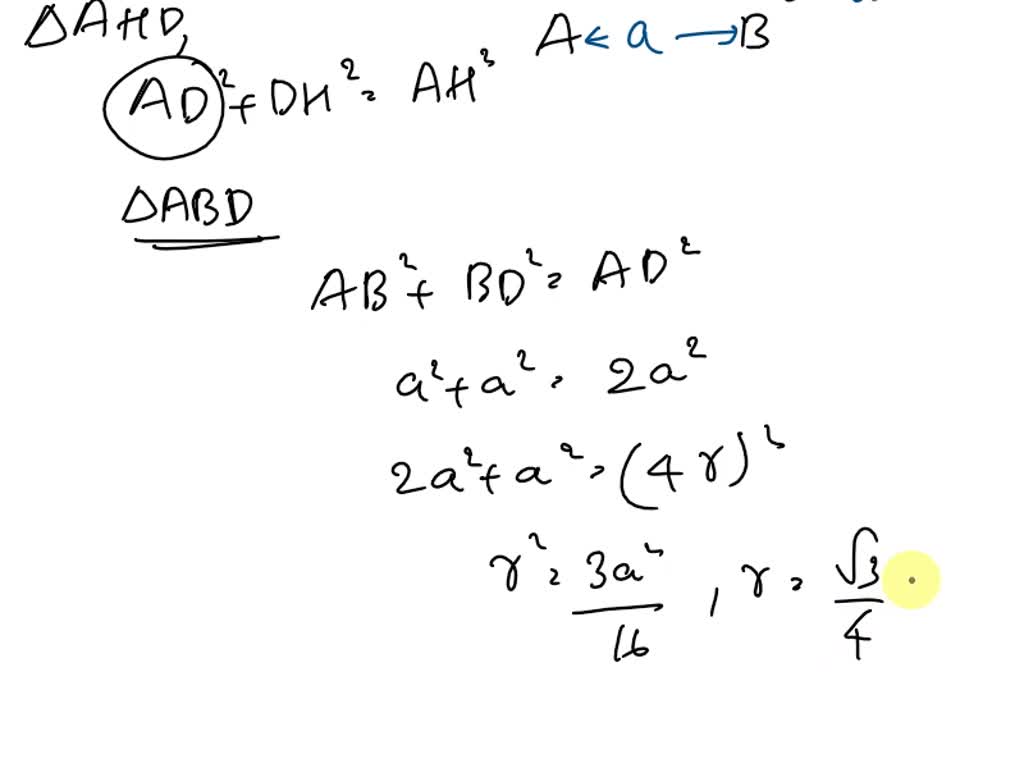 △AHD,
A ← a → B
AD² + DH² = AH²
△ABD
AB² + BD² = AD²
a² + a² = 2a²
2a² + a² = (4r)²
r² = 3a²/16, r = √3/4